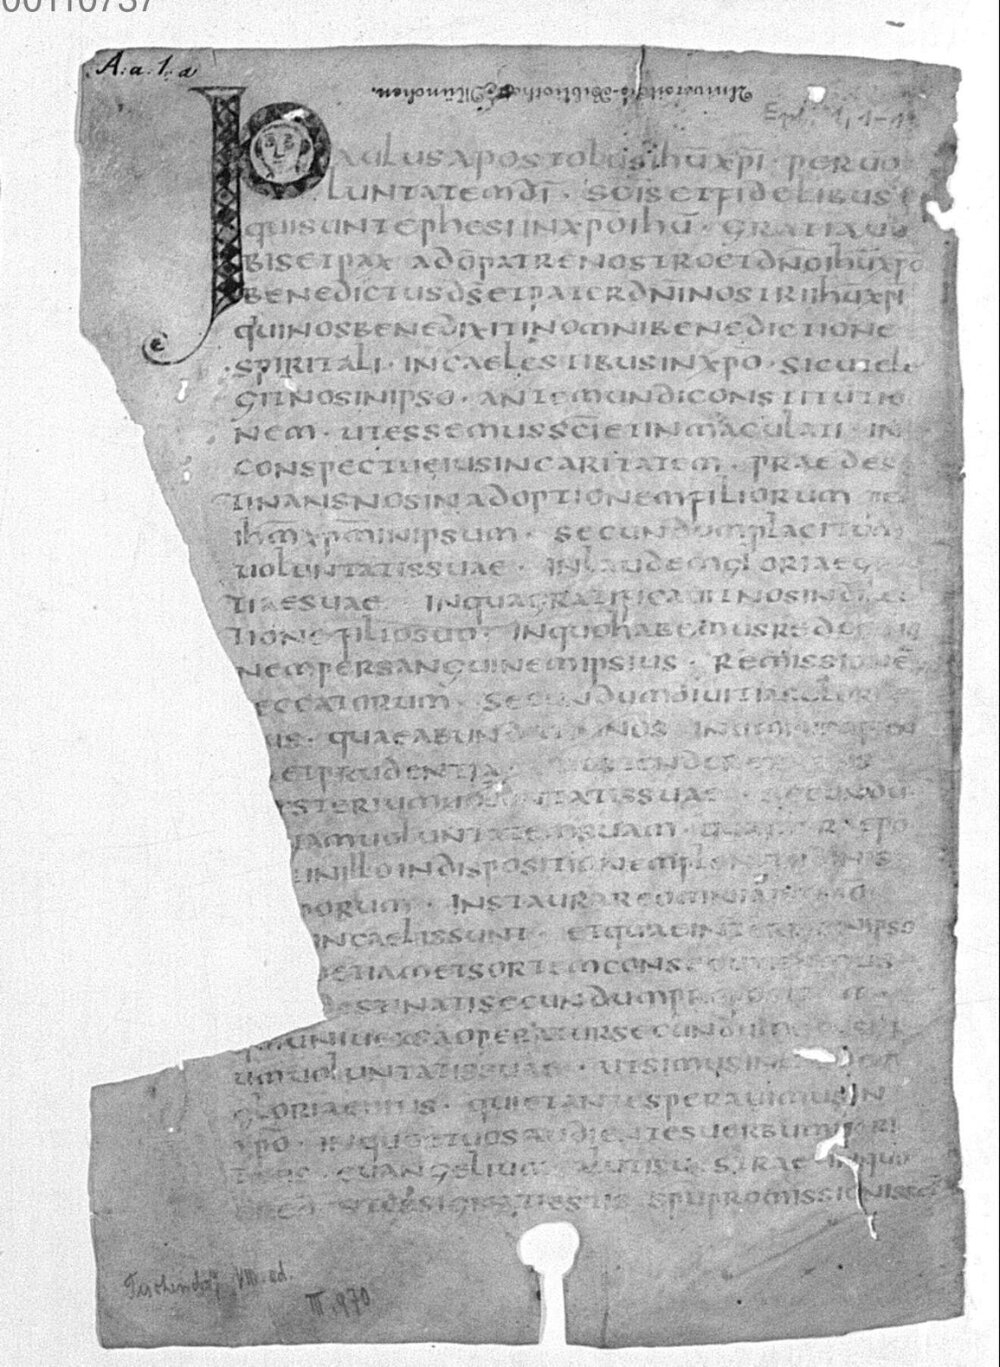 00110737
A: a. 1. a
Universitäts-Bibliothek München.
Eph. 1, 1-1
PAULUSAPOSTOLUSIHŪXPĪ · PERUO
LUNTATEMDĪ · SCISETFIDELIBUS
QUISUNTEPHESIINXPŌIHŪ · GRATIAUO
BISETPAX ADŌPATRENOSTROETDNŌIHŪXPO
BENEDICTUSDSETPATERDNINOSTRIIHŪXPĪ
QUINOSBENEDIXITINOMNIBENEDICTIONE
SPIRITALI · INCAELESTIBUSINXPŌ · SICUTELE
GITNOSINIPSO · ANTEMUNDICONSTITUTIO
NEM · UTESSEMUSSCIETINMACULATI IN
CONSPECTUEIUSINCARITATEM · PRAEDES
TINANSNOSINADOPTIONEMFILIORUM PE
IHMXPMINIPSUM · SECUNDUMPLACITUM
UOLUNTATISSUAE · INLAUDEMGLORIAEG
TIAESUAE INQUAGRATIFICAUITNOSINDILEC
TIONEFILIOSUO · INQUOHABEMUSREDEM
NEMPERSANGUINEMIPSIUS · REMISSIONĒ
ECCATORUM · SECUNDUMDIUITIAS
US · QUAEABUNDAUITINNOS
ETPRUDENTIA · OSTENDERET
YSTERIUMUOLUNTATISSUAE · SECUNDU
NAMUOLUNTATEMSUAM · PROPO
INILLOINDISPOSITIONEMPLENITUDINIS
PORUM · INSTAURAREOMNIAINXPŌ
INCAELISSUNT · ETQUAEINTERRAINIPSO
ETIAMETSORTEMCONSECUTISUMUS
DESTINATISECUNDUMPROPOSIT
UNIUERSAOPERATURSECUNDUM
UMUOLUNTATISSUAE · UTSIMUSIN
GLORIAEEIUS · QUIETANTESPERAUIMUSIN
XPŌ · INQUOETUOSAUDIENTESUERBUMUERI
EUANGELIUM SALUTISUESTRAE INQUO
SIGNATIESTIS SPŪPROMISSIONISSCO
Tischendorf VIII. ed.
III. 970